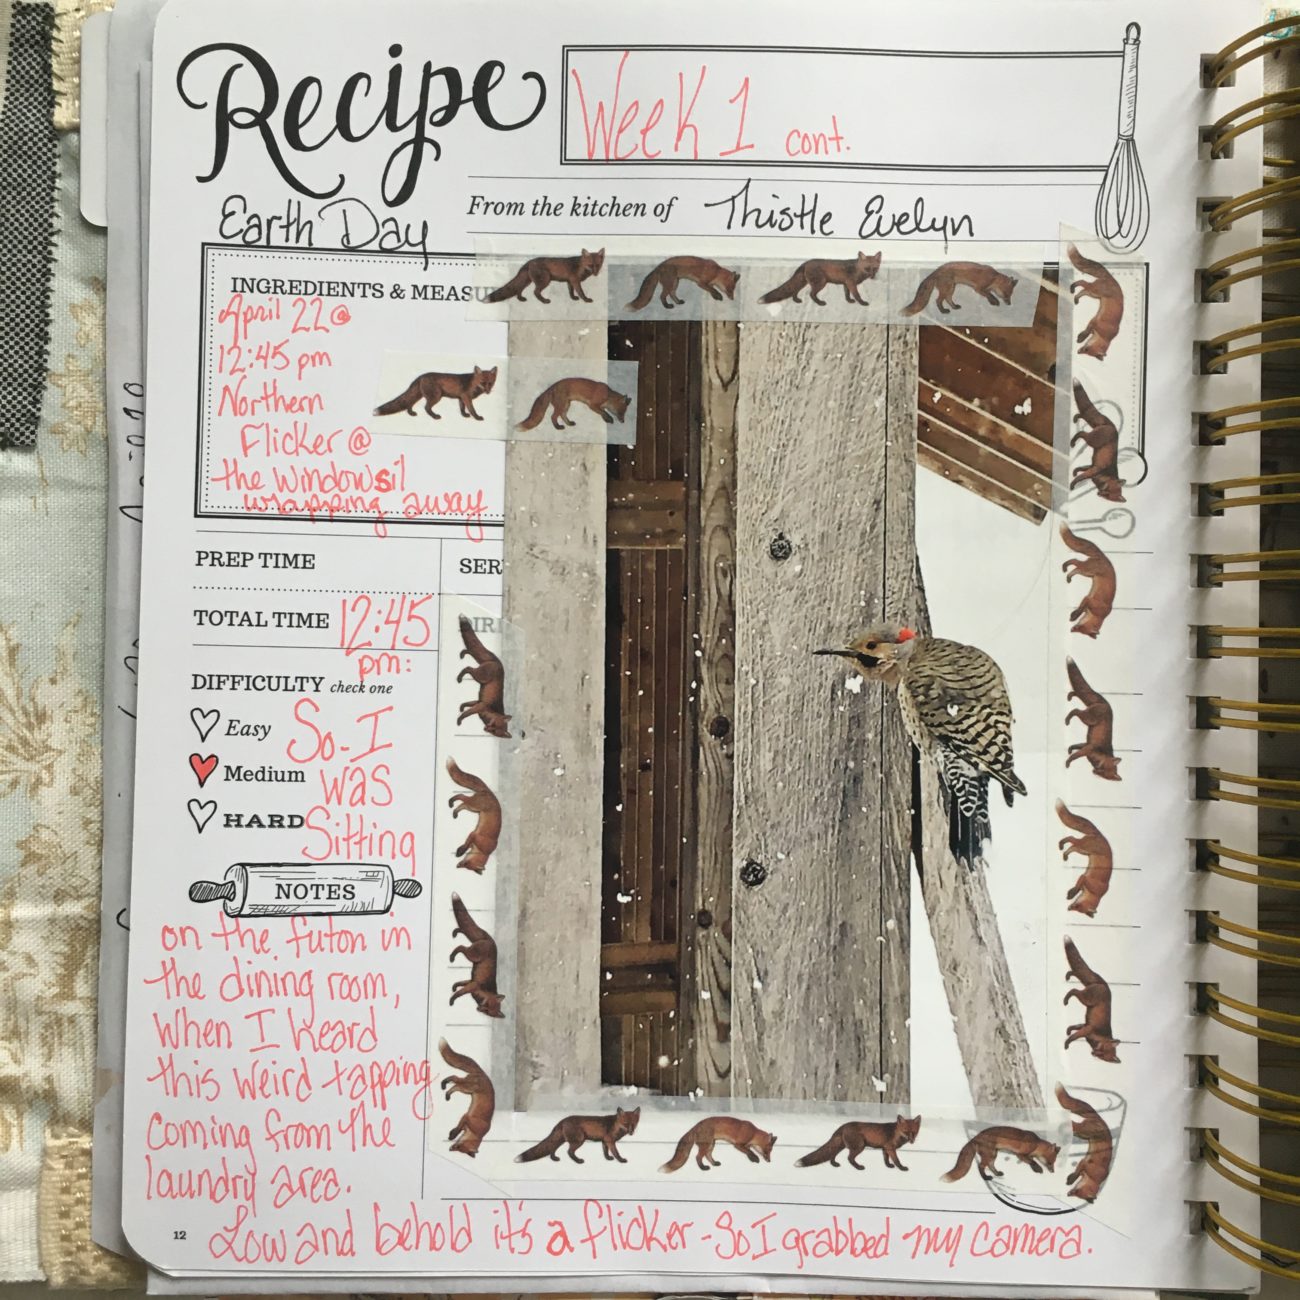 Recipe
Week 1 cont.
Earth Day
From the kitchen of Thistle Evelyn
INGREDIENTS & MEASU
April 22 @
12:45 pm
Northern
Flicker @
the windowsil
wrapping away
PREP TIME
SER
TOTAL TIME 12:45
pm:
DIRE
DIFFICULTY check one
Easy
Medium
HARD
So-I
was
Sitting
NOTES
on the futon in
the dining room,
When I heard
this weird tapping
coming from the
laundry area.
Low and behold it's a flicker - So I grabbed my camera.
12